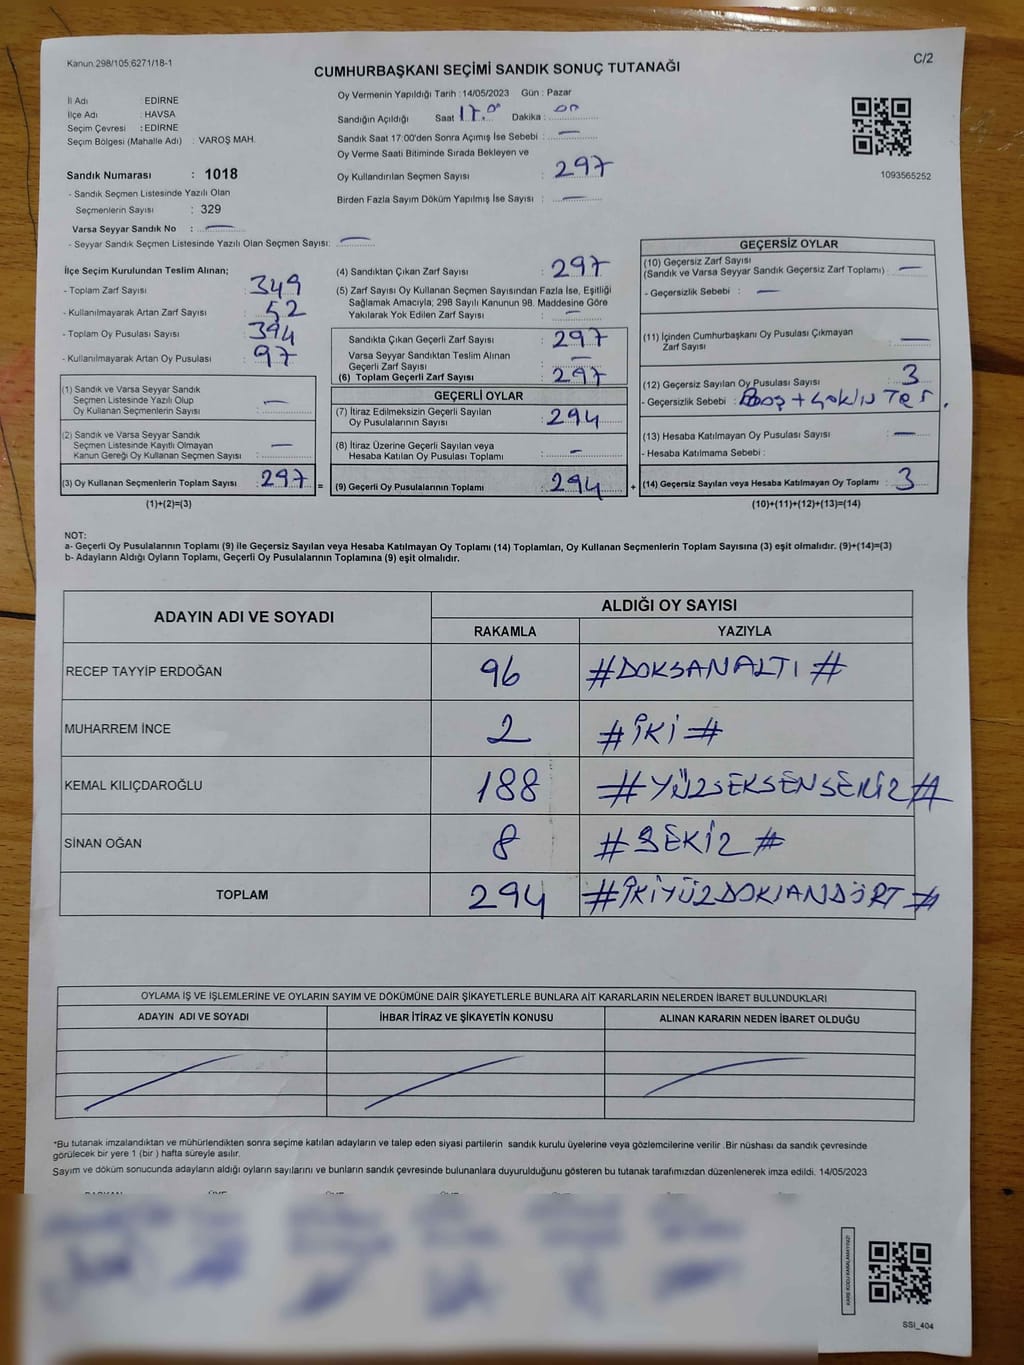 Kanun.298/105;6271/18-1
C/2
CUMHURBAŞKANI SEÇİMİ SANDIK SONUÇ TUTANAĞI
İl Adı : EDIRNE
İlçe Adı : HAVSA
Seçim Çevresi : EDIRNE
Seçim Bölgesi (Mahalle Adı) : VAROŞ MAH.
Sandık Numarası : 1018
- Sandık Seçmen Listesinde Yazılı Olan
Seçmenlerin Sayısı : 329
Varsa Seyyar Sandık No : —
- Seyyar Sandık Seçmen Listesinde Yazılı Olan Seçmen Sayısı: —
Oy Vermenin Yapıldığı Tarih : 14/05/2023 Gün : Pazar
Sandığın Açıldığı Saat 17.00 Dakika : 00
Sandık Saat 17:00'den Sonra Açımış İse Sebebi : —
Oy Verme Saati Bitiminde Sırada Bekleyen ve
Oy Kullandırılan Seçmen Sayısı : 297
Birden Fazla Sayım Döküm Yapılmış İse Sayısı : —
1093565252
İlçe Seçim Kurulundan Teslim Alınan;
- Toplam Zarf Sayısı : 349
- Kullanılmayarak Artan Zarf Sayısı : 52
- Toplam Oy Pusulası Sayısı : 394
- Kullanılmayarak Artan Oy Pusulası : 97
(1) Sandık ve Varsa Seyyar Sandık
Seçmen Listesinde Yazılı Olup
Oy Kullanan Seçmenlerin Sayısı : —
(2) Sandık ve Varsa Seyyar Sandık
Seçmen Listesinde Kayıtlı Olmayan
Kanun Gereği Oy Kullanan Seçmen Sayısı : —
(3) Oy Kullanan Seçmenlerin Toplam Sayısı : 297 =
(1)+(2)=(3)
(4) Sandıktan Çıkan Zarf Sayısı : 297
(5) Zarf Sayısı Oy Kullanan Seçmen Sayısından Fazla İse, Eşitliği
Sağlamak Amacıyla; 298 Sayılı Kanunun 98. Maddesine Göre
Yakılarak Yok Edilen Zarf Sayısı : —
Sandıkta Çıkan Geçerli Zarf Sayısı : 297
Varsa Seyyar Sandıktan Teslim Alınan
Geçerli Zarf Sayısı : —
(6) Toplam Geçerli Zarf Sayısı : 297
GEÇERLİ OYLAR
(7) İtiraz Edilmeksizin Geçerli Sayılan
Oy Pusulalarının Sayısı : 294
(8) İtiraz Üzerine Geçerli Sayılan veya
Hesaba Katılan Oy Pusulası Toplamı : —
(9) Geçerli Oy Pusulalarının Toplamı : 294 +
GEÇERSİZ OYLAR
(10) Geçersiz Zarf Sayısı
(Sandık ve Varsa Seyyar Sandık Geçersiz Zarf Toplamı) : —
- Geçersizlik Sebebi : —
(11) İçinden Cumhurbaşkanı Oy Pusulası Çıkmayan
Zarf Sayısı : —
(12) Geçersiz Sayılan Oy Pusulası Sayısı : 3
- Geçersizlik Sebebi :
(13) Hesaba Katılmayan Oy Pusulası Sayısı : —
- Hesaba Katılmama Sebebi :
(14) Geçersiz Sayılan veya Hesaba Katılmayan Oy Toplamı : 3
(10)+(11)+(12)+(13)=(14)
NOT:
a- Geçerli Oy Pusulalarının Toplamı (9) ile Geçersiz Sayılan veya Hesaba Katılmayan Oy Toplamı (14) Toplamları, Oy Kullanan Seçmenlerin Toplam Sayısına (3) eşit olmalıdır. (9)+(14)=(3)
b- Adayların Aldığı Oyların Toplamı, Geçerli Oy Pusulalarının Toplamına (9) eşit olmalıdır.
ADAYIN ADI VE SOYADI ALDIĞI OY SAYISI
RAKAMLA YAZIYLA
RECEP TAYYİP ERDOĞAN 96 #DOKSANALTI#
MUHARREM İNCE 2 #İKİ#
KEMAL KILIÇDAROĞLU 188 #YÜZSEKSENSEKİZ#
SİNAN OĞAN 8 #SEKİZ#
TOPLAM 294 #İKİYÜZDOKSANDÖRT#
OYLAMA İŞ VE İŞLEMLERİNE VE OYLARIN SAYIM VE DÖKÜMÜNE DAİR ŞİKAYETLERLE BUNLARA AİT KARARLARIN NELERDEN İBARET BULUNDUKLARI
ADAYIN ADI VE SOYADI İHBAR İTİRAZ VE ŞİKAYETİN KONUSU ALINAN KARARIN NEDEN İBARET OLDUĞU
*Bu tutanak imzalandıktan ve mühürlendikten sonra seçime katılan adayların ve talep eden siyasi partilerin sandık kurulu üyelerine veya gözlemcilerine verilir .Bir nüshası da sandık çevresinde
görülecek bir yere 1 (bir ) hafta süreyle asılır.
Sayım ve döküm sonucunda adayların aldığı oyların sayılarını ve bunların sandık çevresinde bulunanlara duyurulduğunu gösteren bu tutanak tarafımızdan düzenlenerek imza edildi. 14/05/2023
KARE KODU KARALAMAYINIZ!
SSI_404